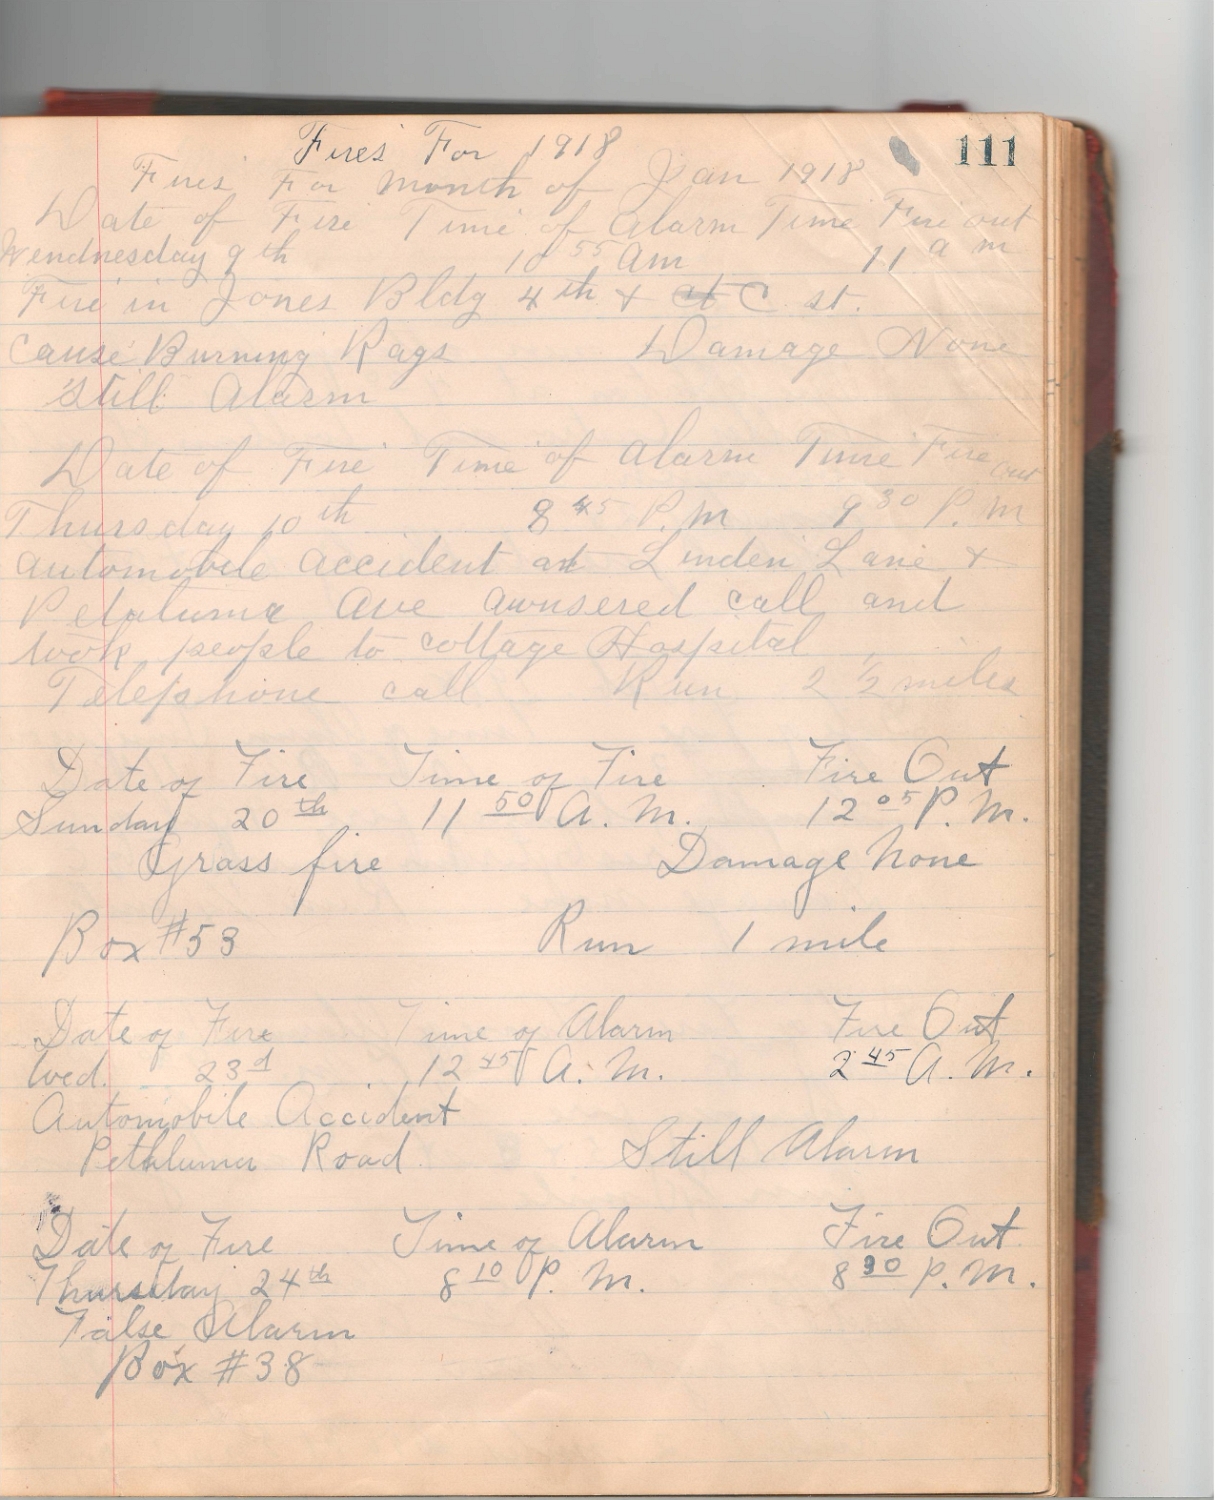 111
Fires For 1918
Fires For month of Jan 1918
Date of Fire Time of Alarm Time Fire out
Wendnesday 9th 10 55 Am 11 a m
Fire in Jones Bldg 4th & C st.
Cause Burning Rags Damage None
Still Alarm
Date of Fire Time of Alarm Time Fire out
Thursday 10th 8 45 P.M 9 30 P.M
Automobile accident at Linden Lane &
Petaluma Ave awnsered call and
took people to cottage Hospital
Telephone call Run 2 1/2 miles
Date of Fire Time of Fire Fire Out
Sunday 20th 11 50 A.M. 12 05 P.M.
Grass fire Damage None
Box #53 Run 1 mile
Date of Fire Time of Alarm Fire Out
Wed. 23d 12 45 A.M. 2 45 A.M.
Automobile Accident
Pethluma Road Still Alarm
Date of Fire Time of Alarm Fire Out
Thursday 24th 8 10 P.M. 8 30 P.M.
False Alarm
Box #38